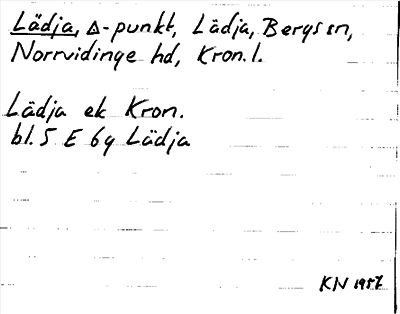 Lädja, Δ-punkt, Lädja, Bergs sn,
Norrvidinge hd, Kron. l.
Lädja ek Kron.
bl. 5 E 6g Lädja
KN 1957